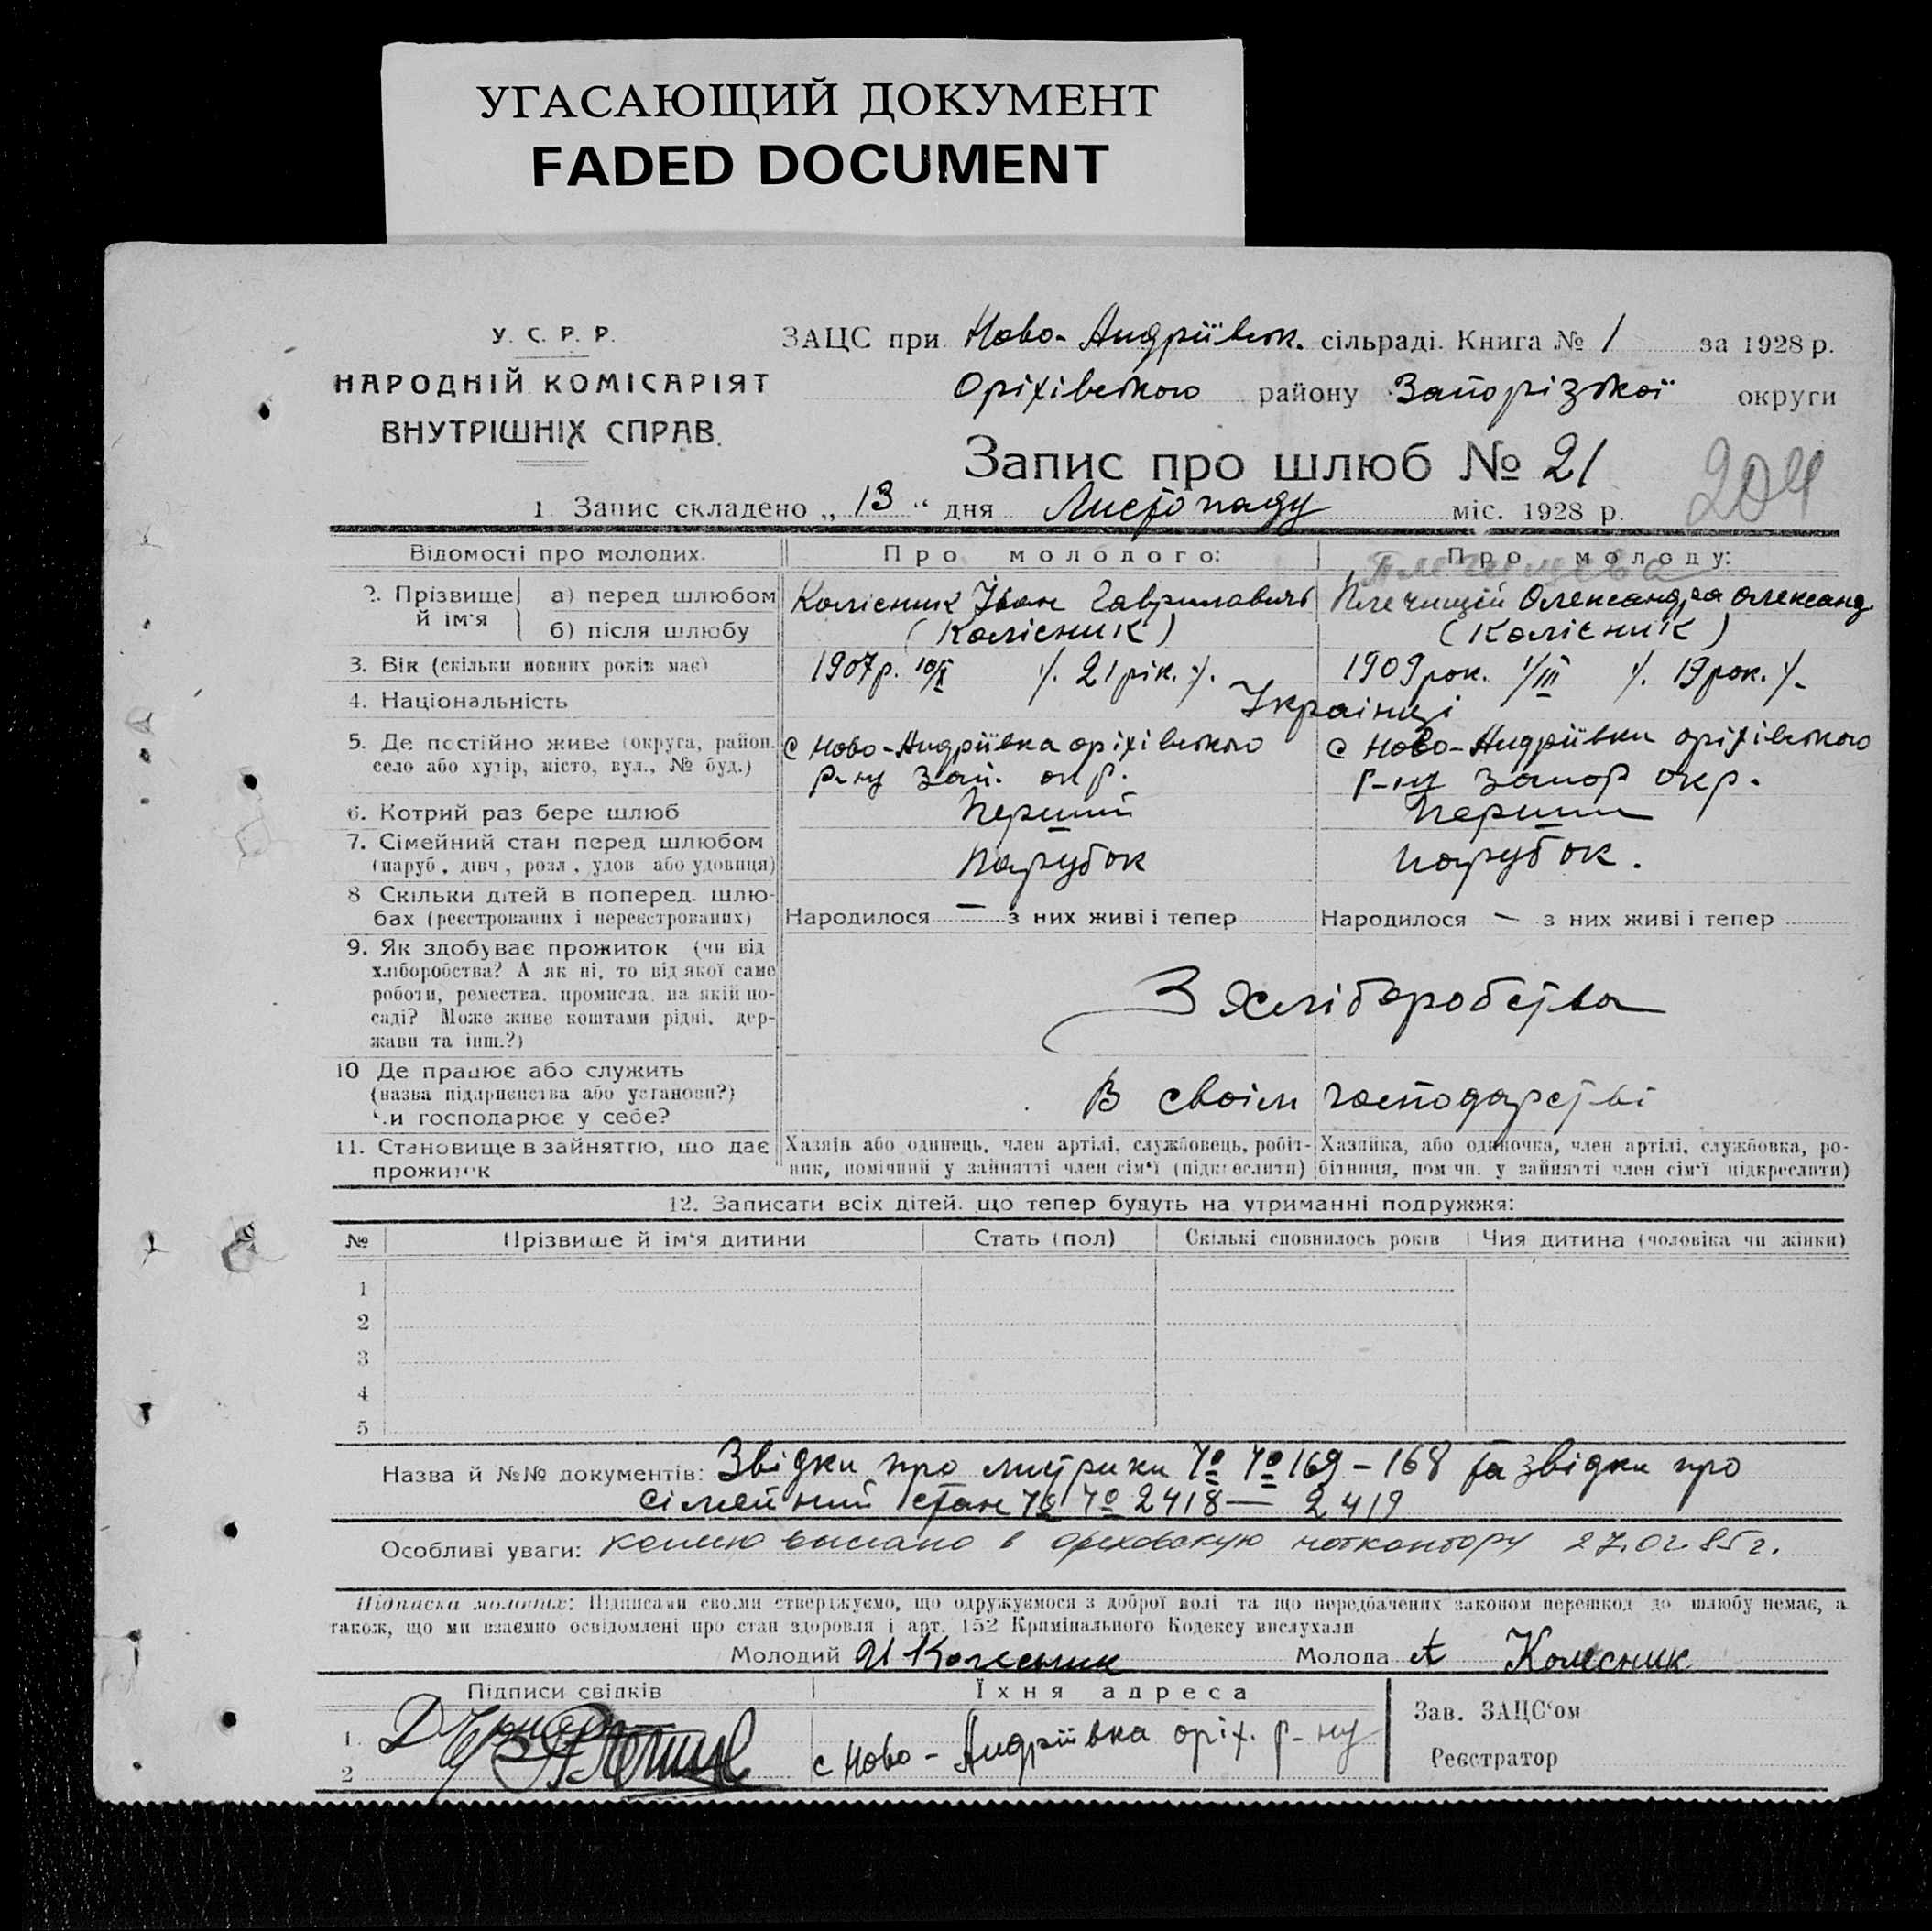 УГАСАЮЩИЙ ДОКУМЕНТ
FADED DOCUMENT
У. С. Р. Р.
НАРОДНІЙ КОМІСАРІЯТ
ВНУТРІШНІХ СПРАВ.
ЗАЦС при Ново-Андріївськ. сільраді. Книга № 1 за 1928 р.
Оріхівського району Запорізької округи
Запис про шлюб № 21
204
1 Запис складено „ 13 “ дня Листопаду міс. 1928 р.
Відомості про молодих. Про молодого: Про молоду:
2. Прізвище й ім'я а) перед шлюбом Колісник Іван Гаврилович Олександра Олександ.
б) після шлюбу (Колісник) (Колісник)
3. Вік (скільки повних років має) 1907 р. 10/X ⁒ 21 рік. ⁒ 1909 рок. 1/III ⁒ 19 рок. ⁒
4. Національність Українці
5. Де постійно живе (округа, район. с Ново-Андріївка оріхівського с Ново-Андріївки оріхівського
село або хутір, місто, вул., № буд.) р-ну Зап. окр. р-ну Запор окр.
6. Котрий раз бере шлюб Перший Перший
7. Сімейний стан перед шлюбом
(паруб, дівч, розл, удов або удовиця) Парубок парубок.
8 Скільки дітей в поперед. шлю-
бах (реєстрованих і нереєстрованих) Народилося — з них живі і тепер Народилося — з них живі і тепер
9. Як здобуває прожиток (чи від
хліборобства? А як ні, то від якої саме
роботи, ремества, промисла, на якій по- З хліборобства
саді? Може живе коштами рідні, дер-
жави та інш.?)
10 Де працює або служить
(назва підприємства або установи?) В своїм господарстві
чи господарює у себе?
11. Становище в зайняттю, що дає Хазяїв або одинець, член артілі, службовець, робіт- Хазяйка, або одиночка, член артілі, службовка, ро-
прожиток ник, помічний у зайнятті член сім'ї (підкреслити) бітниця, пом чн. у зайнятті член сім'ї підкреслити)
12. Записати всіх дітей, що тепер будуть на утриманні подружжя:
№ Прізвище й ім'я дитини Стать (пол) Скількі сповнилось років Чия дитина (чоловіка чи жінки)
1
2
3
4
5
Назва й №№ документів: Звідки про митрики № № 169 – 168 та звідки про
сімейний стан № № 2418 — 2419
Особливі уваги: копию выслано в Ореховскую нотконтору 27.02.85 г.
Підписка молодих: Підписами своїми стверджуємо, що одружуємося з доброї волі та що передбачених законом перешкод до шлюбу немає, а
також, що ми взаємно освідомлені про стан здоровля і арт. 152 Кримінального Кодексу вислухали
Молодий И Колесник Молода А Колесник
Підписи свідків Їхня адреса Зав. ЗАЦС'ом
1.
2 с Ново-Андріївка оріх. р-ну Реєстратор